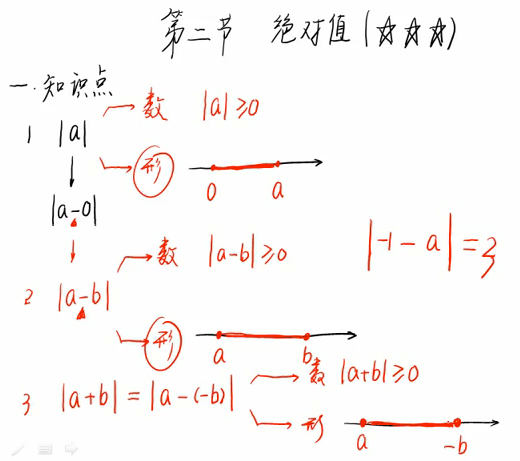 第二节 绝对值(☆☆☆)
一.知识点
1 |a| → 数 |a|≥0
→ 形 0 a
↓
|a-0|
↓
2 |a-b| → 数 |a-b|≥0 |-1-a|=3
→ 形 a b
3 |a+b|=|a-(-b)| → 数 |a+b|≥0
→ 形 a -b